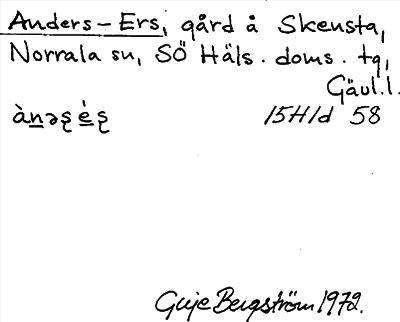 Anders-Ers, gård å Skensta,
Norrala sn, SÖ Häls. doms. tg,
Gävl. l.
ànəʂ éʂ 15H1d 58
Guje Bergström 1972.